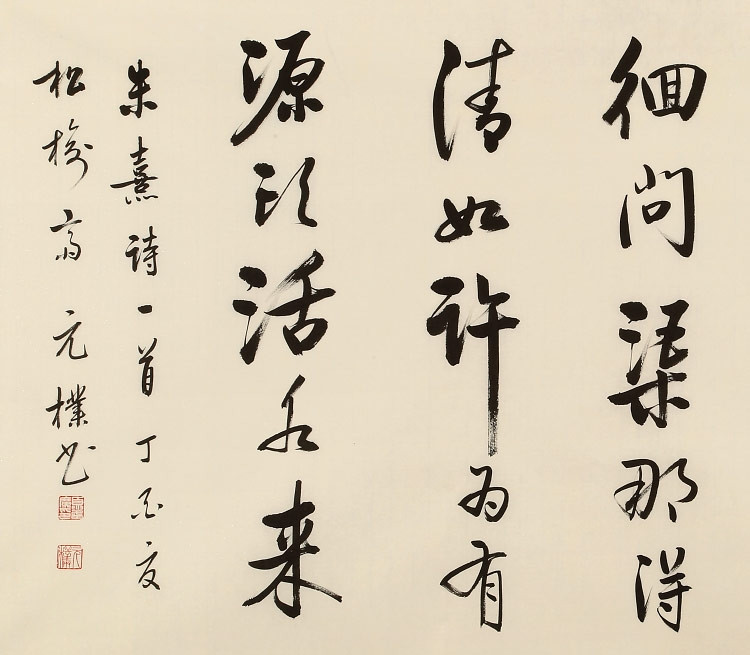 徊問渠那得
清如許為有
源頭活水来
朱熹詩一首丁酉夏
松齋元樸书